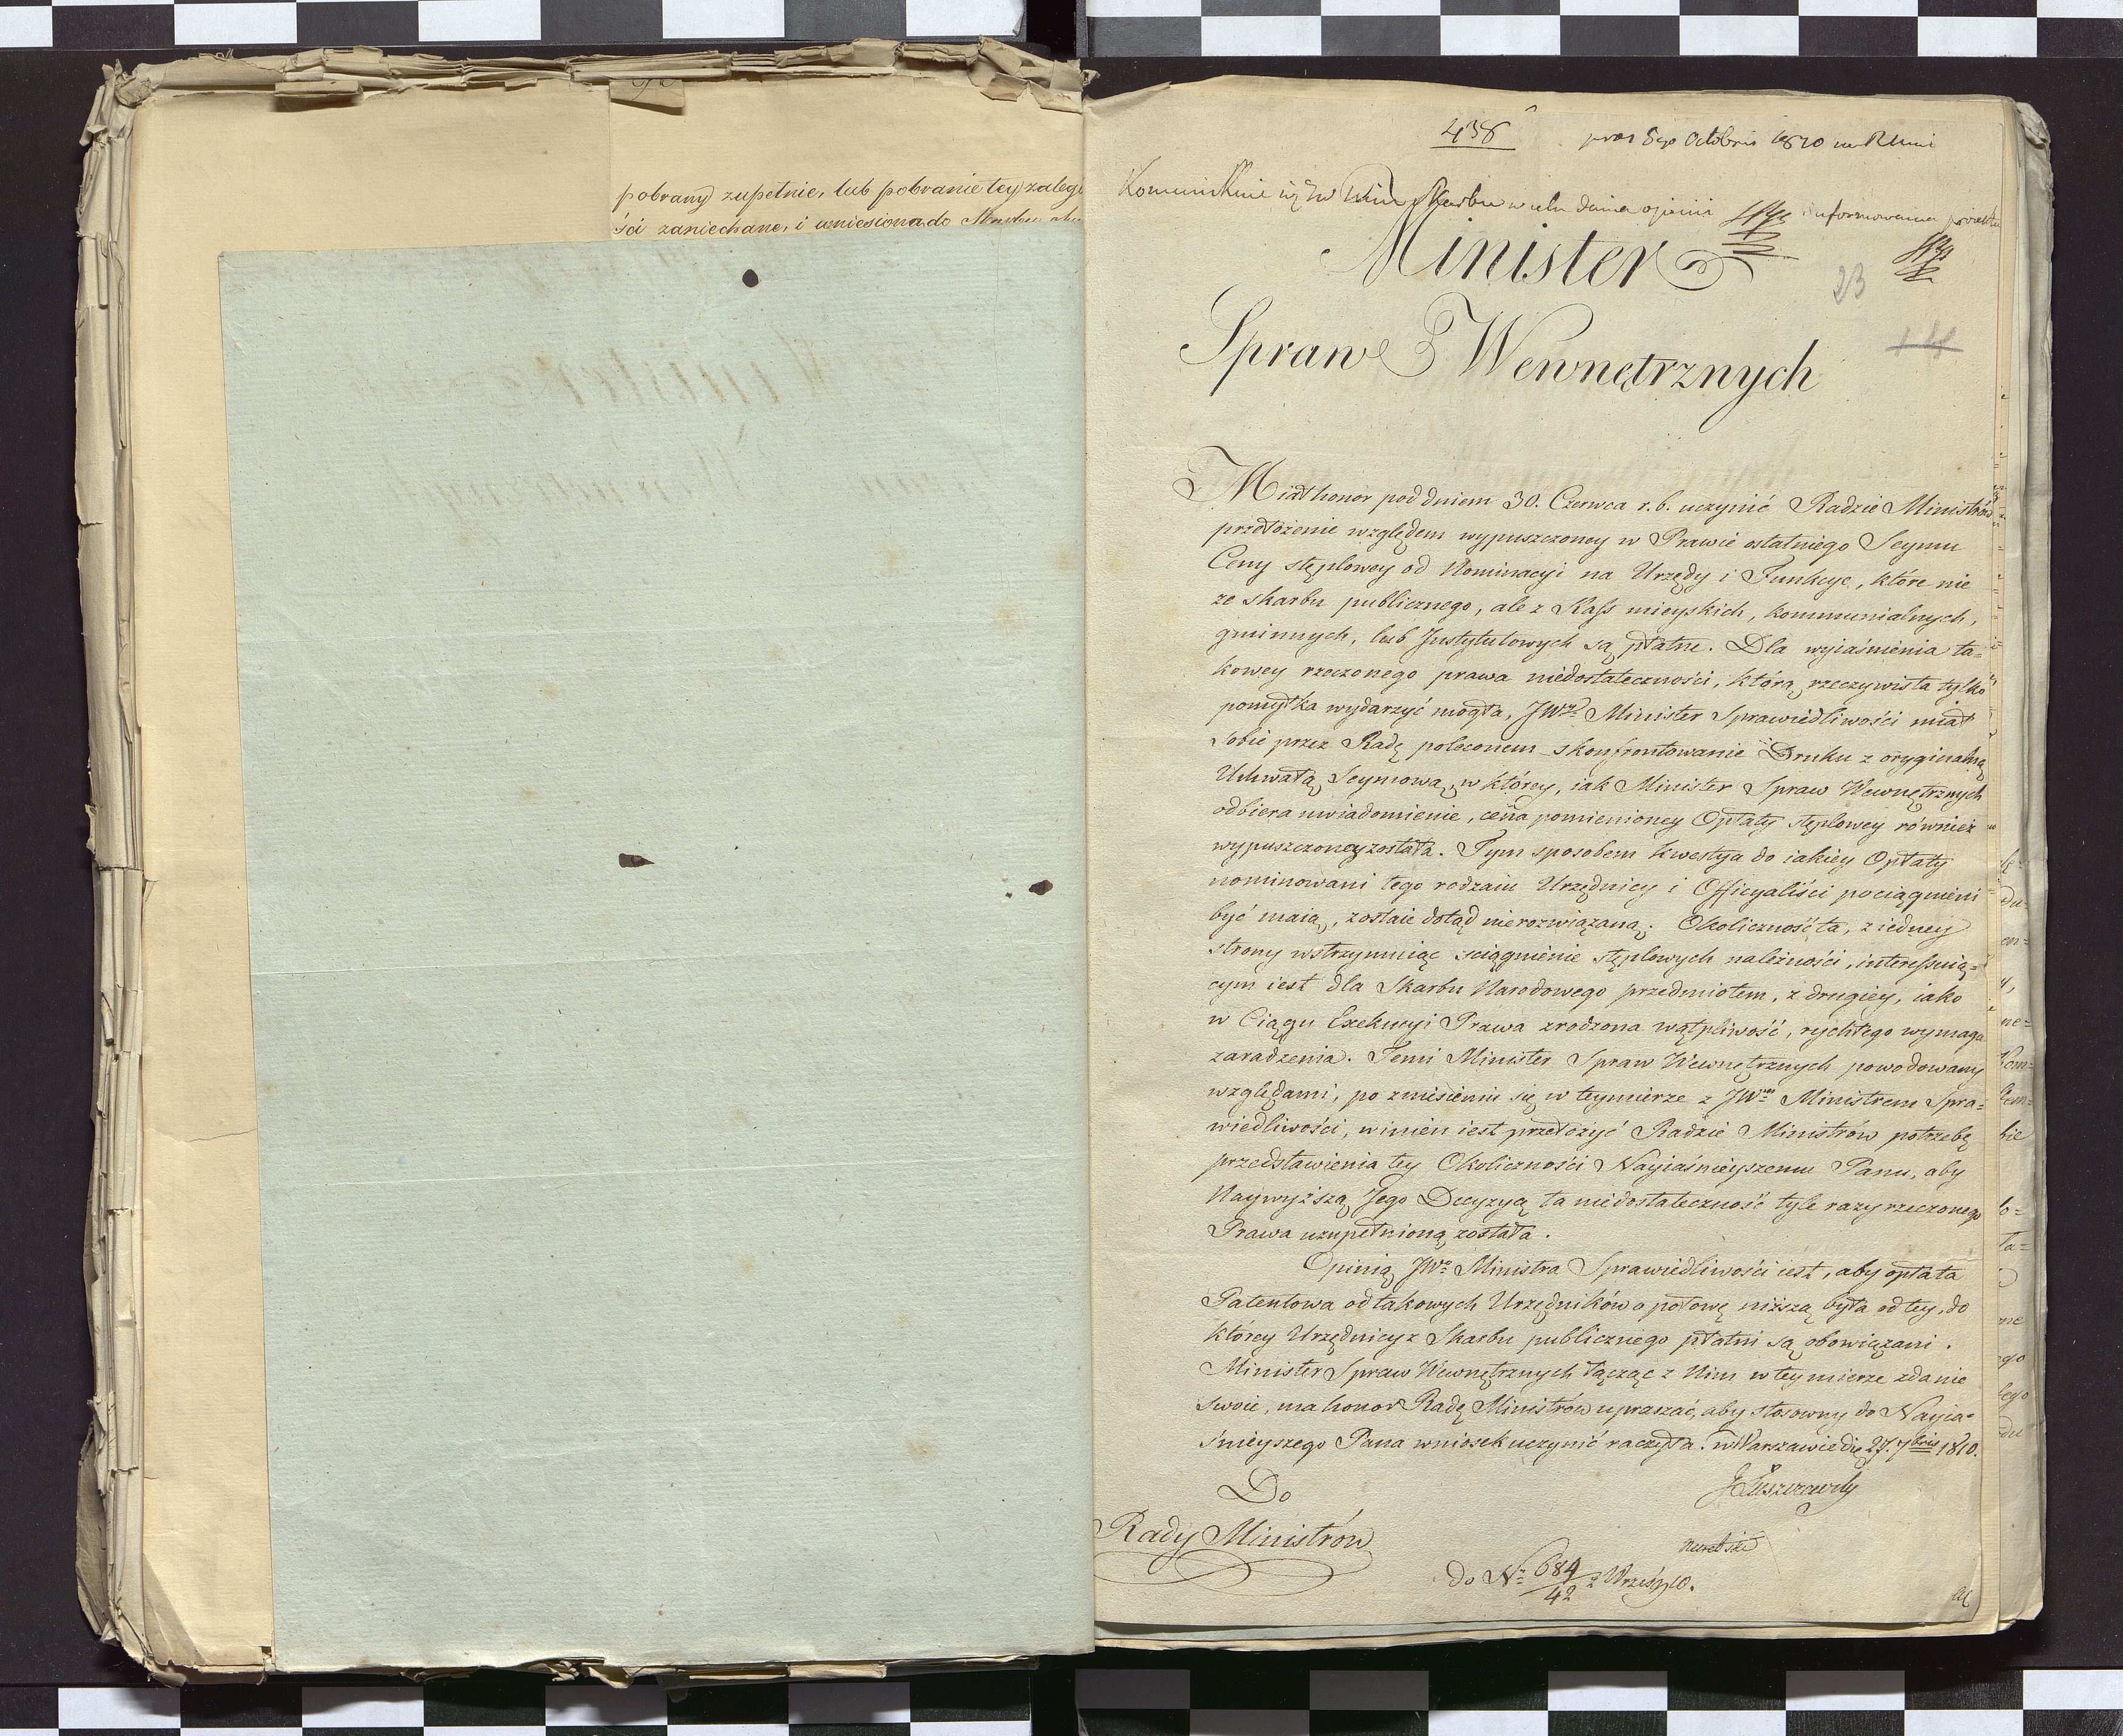 pobrany zupełnie, lub pobranie tey zaleg
ści zaniechane, i uniesiona do
438
pras 5go Octobris 1810 w RMini
Kommunikuie się JW Min Skarbu w celu dania opinii i uformowania proiektu
Minister
23
Spraw Wewnętrznych
Miał honor pod dniem 30. Czerwca r.b. uczynić Radzie Ministrów
przełożenie względem wypuszczoney w Prawie ostatniego Seymu
Ceny stęplowey od Nominacyi na Urzędy i Funkcye, które nie
ze skarbu publicznego, ale z Kass mieyskich, kommunialnych,
gminnych, lub Instytutowych są płatne. Dla wyiasnienia ta=
kowey rzeczonego prawa niedostateczności, którą rzeczywista tylko
pomyłka wydarzyć mogła, JWy Minister Sprawiedliwości miał
sobie przez Radę poleconem skonfrontowanie Druku z oryginalną
Uchwałą Seymową, w którey, iak Minister Spraw Wewnętrznych
odbiera uwiadomienie, cena pomienioney Opłaty stęplowey również
wypuszczoney została. Tym sposobem kwestya do iakiey Opłaty
nominowani tego rodzaiu Urzędnicy i Officyaliści pociągnieni
być maią, zostaie dotąd nierozwiązaną. Okoliczność ta, z iedney
strony wstrzymuiąc sciągnienie stęplowych należności, interessuią=
cym iest dla Skarbu Narodowego przedmiotem, z drugiey, iako
w Ciągu Exekucyi Prawa zrodzona wątpliwość, rychłego wymaga
zaradzenia. Temi Minister Spraw Wewnętrznych powodowany
względami, po zniesieniu się w teymierze z JWm Ministrem Spra=
wiedliwości, winien iest przełożyć Radzie Ministrów potrzebę
przedstawienia tey Okoliczności Nayiaśnieyszemu Panu, aby
Naywyższą Jego Decyzyą ta niedostateczność tyle razy rzeczonego
Prawa uzupełnioną została.
Opinią JWo Ministra Sprawiedliwości iest, aby opłata
Patentowa od takowych Urzędników o połowę niższą była od tey, do
którey Urzędnicy z Skarbu publicznego płatni są obowiązani.
Minister Spraw Wewnętrznych łącząc z Nim w tey mierze zdanie
swoie, ma honor Radę Ministrów upraszać, aby stosowny do Nayia=
śnieyszego Pana wniosek uczynić raczyła. w Warszawie Dię 27. 7bris 1810.
J Łuszczewsky
Do
Rady Ministrów
do No 684/42 z Wrześ. 10.